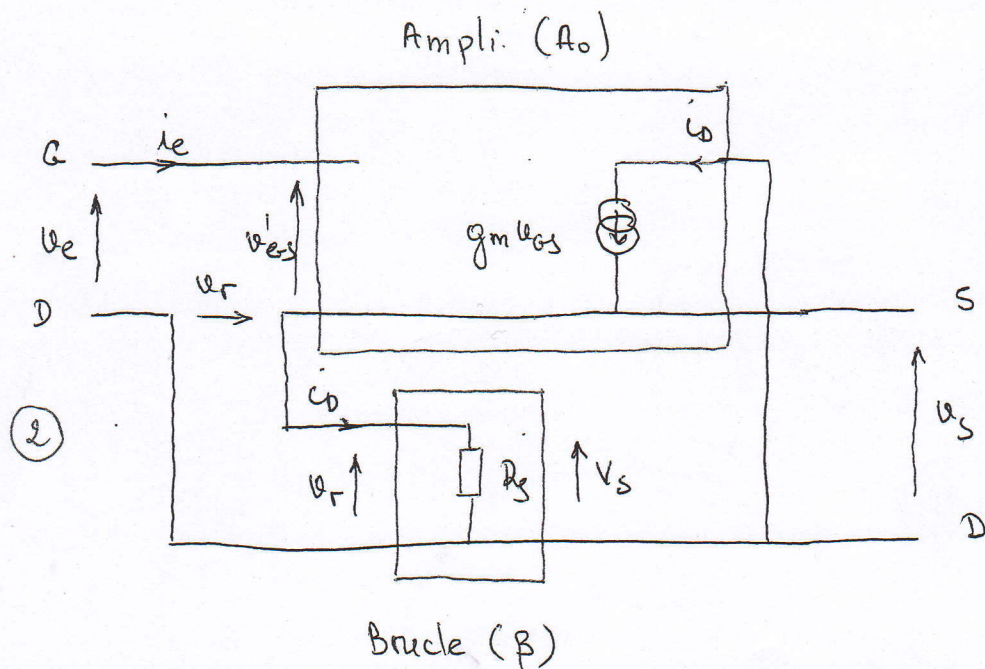 Ampli. (A₀)
G
ie
iD
ve
vGS
gm vGS
D
vr
S
②
iD
vr
RS
VS
vS
D
Brucle (β)